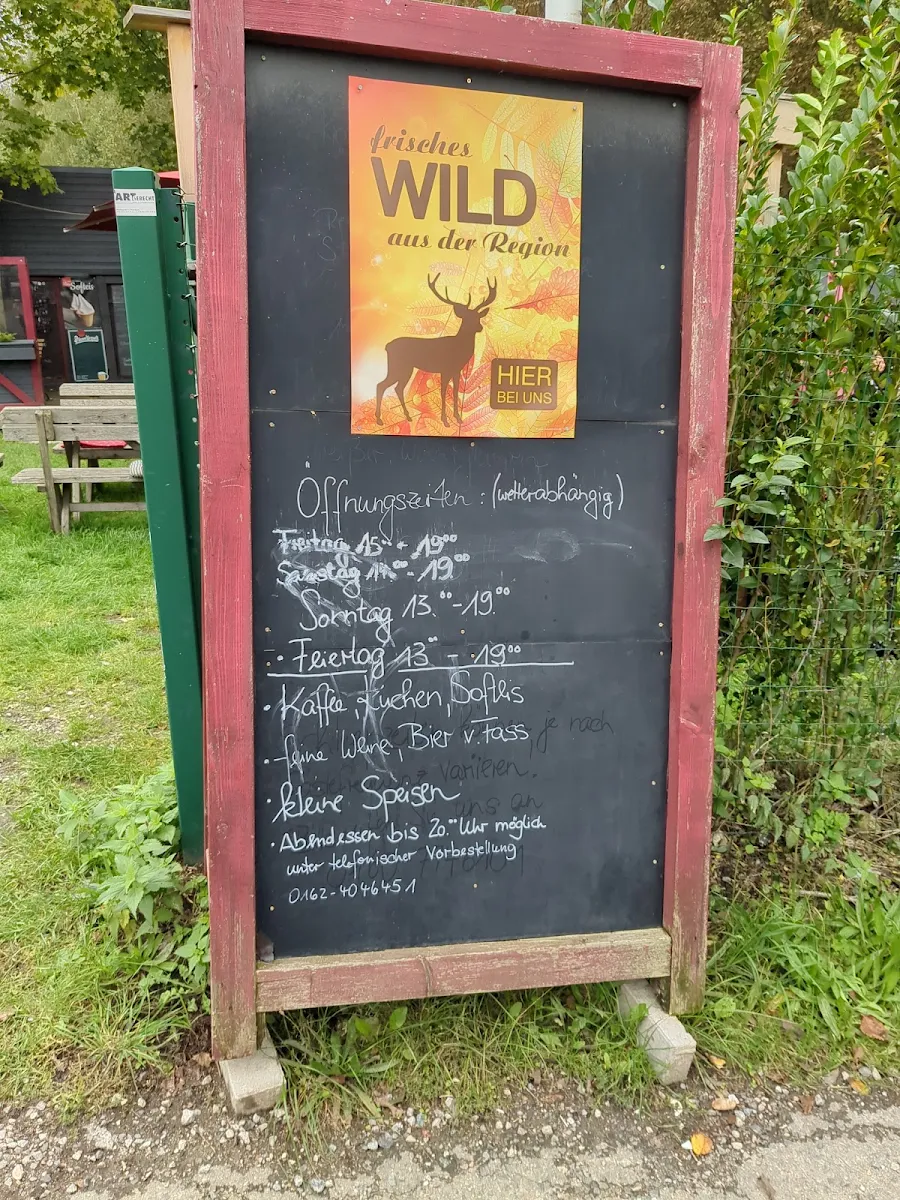 ART
Softeis
frisches
WILD
aus der Region
HIER
BEI UNS
Öffnungszeiten : (wetterabhängig)
Freitag 15⁰⁰ - 19⁰⁰
Samstag 14⁰⁰ - 19⁰⁰
Sonntag 13.⁰⁰ - 19.⁰⁰
• Feiertag 13⁰⁰ - 19⁰⁰
• Kaffee, Kuchen, Softeis
• feine Weine, Bier v. Fass
je nach
variieren.
uns an
• kleine Speisen
• Abendessen bis 20.⁰⁰ Uhr möglich
unter telefonischer Vorbestellung
0162-4046451